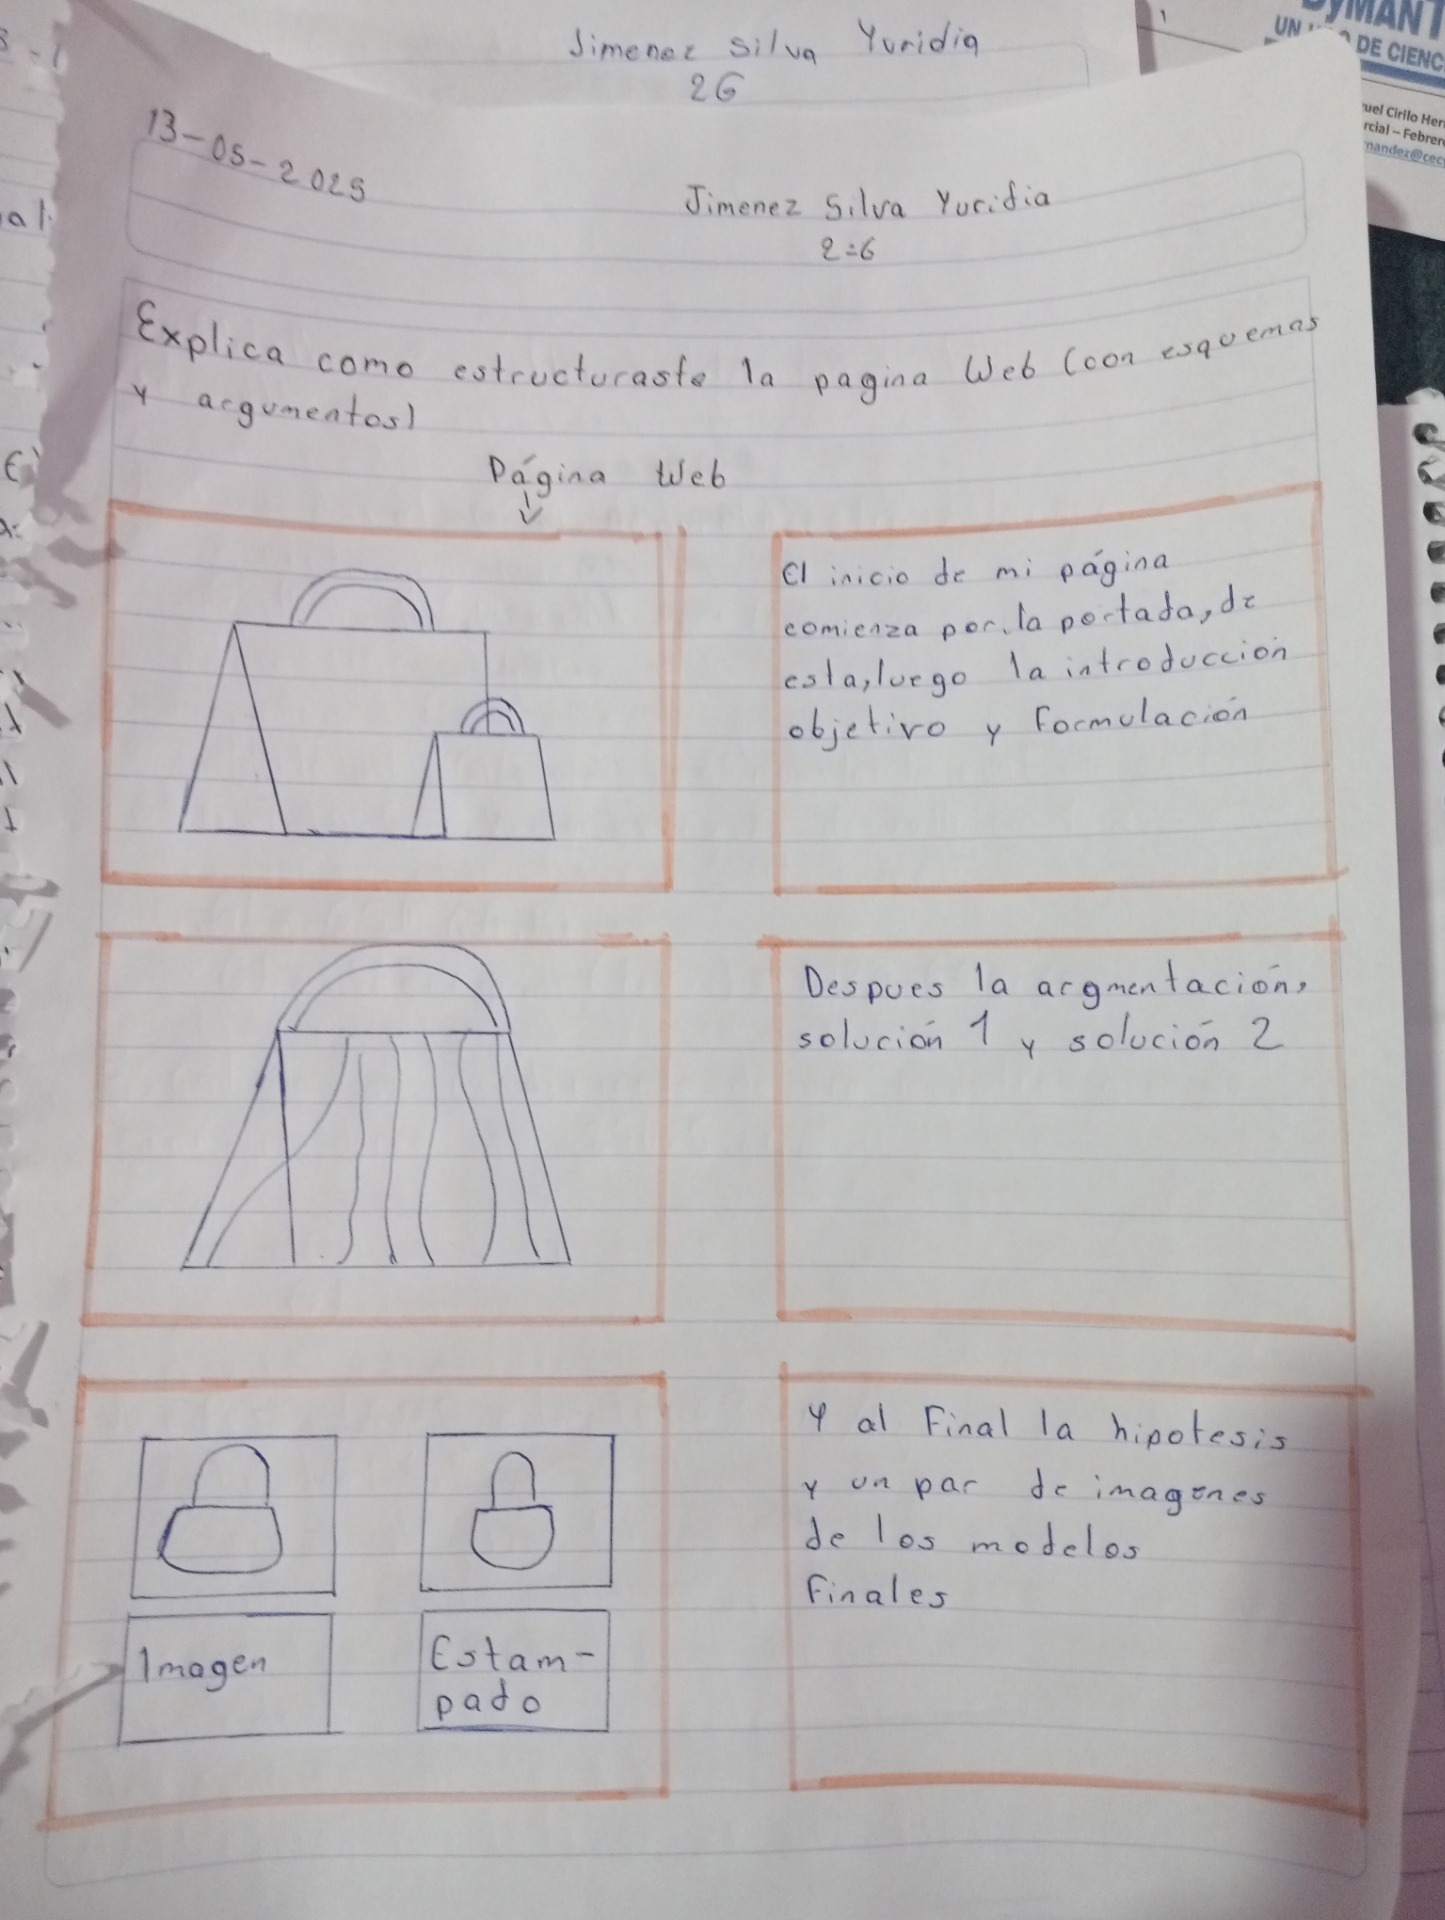 Jimenez Silva Yuridia
2G
DyMANT
UN
DE CIENC
uel Cirilo Her
rcial – Febrer
nandez@cec
13-05-2025
Jimenez Silva Yuridia
2=6
Explica como estructuraste la pagina Web (con esquemas
y argumentos)
Página Web
El inicio de mi página
comienza por la portada, de
esta, luego la introducción
objetivo y Formulación
Despues la argmentación,
solución 1 y solución 2
Y al Final la hipotesis
y un par de imagenes
de los modelos
Finales
Imagen
Estam-
pado